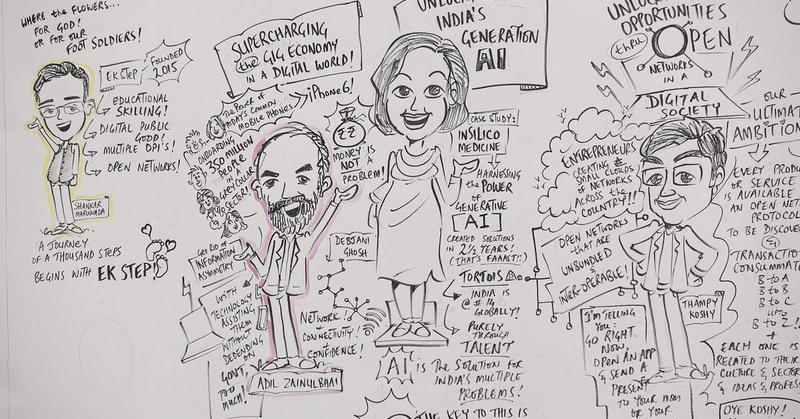 WHERE the FLOWERS...
FOR GOD!
OR FOR OUR
FOOT SOLDIERS!
EK STEP
FOUNDED
2015
EDUCATIONAL
SKILLING!
DIGITAL PUBLIC
GOOD!
MULTIPLE DPI's!
OPEN NETWORKS!
SHANKAR
MARUWADA
A JOURNEY
OF A THOUSAND STEPS
BEGINS WITH EK STEP!
SUPERCHARGING
the GIG ECONOMY
IN A DIGITAL WORLD!
iPHONE 6!
The POWER OF
TODAY'S COMMON
MOBILE PHONES
ONBOARDING
350 MILLION
PEOPLE
IN A
GREY COLLAR
SECTOR!
MONEY IS
NOT A
PROBLEM!
GET RID OF
INFORMATION
ASYMMETRY
WITH
TECHNOLOGY
ASSISTING
THEM
WITHOUT
DEPENDING
ON
GOVT,
TOO
MUCH!
NETWORK!
+
CONNECTIVITY!
+
CONFIDENCE!
ADIL ZAINULBHAI
INDIA'S
GENERATION
AI
CASE STUDY:
INSILICO
MEDICINE
HARNESSING
the POWER
OF
GENERATIVE
AI
CREATED SOLUTIONS
IN 2 1/2 YEARS!
(THAT'S FAAAST!)
TORTOIS
INDIA IS
@ # 14
GLOBALLY!
PURELY
THROUGH
TALENT
DEBJANI
GHOSH
AI IS the SOLUTION FOR
INDIA'S MULTIPLE
PROBLEMS!
THE KEY TO THIS IS
OPPORTUNITIES
thru OPEN
NETWORKS
IN A
DIGITAL
SOCIETY
ENTREPRENEURS
CREATING
SMALL CLOUDS
OF NETWORKS
ACROSS
the
COUNTRY!!
OPEN NETWORKS
that ARE
UNBUNDLED
&
INTER-OPERABLE!
I'M TELLING
YOU:
GO RIGHT
NOW,
OPEN AN APP
& SEND A
PRESENT
TO YOUR MOM
OR YOUR
THAMPY
KOSHY
OUR
ULTIMATE
AMBITION
EVERY PRODUCT
OR SERVICE
IS AVAILABLE
AN OPEN NET
PROTOCOL
TO BE DISCOVER
&
TRANSACTION
CONSUMMAT
B-to A
B to B
B to C
UPTO
B to Z!!
+
EACH ONE IS
RELATED to THEIR
CULTURE & SECTOR
& IDEAS & PROFESS
OYE KOSHY!